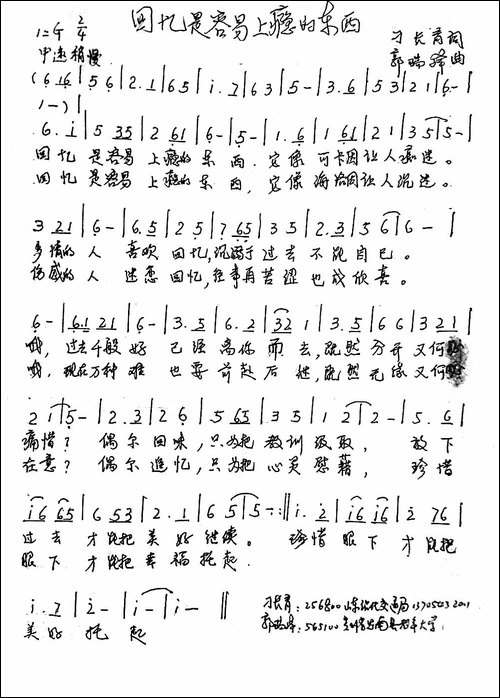 回忆是容易上瘾的东西
1=G 2/4
刁长育词
中速稍慢
郭瑞绎曲
(6 16|5 6|2.1|6 5|i.7|6 3|5-|3.6|5 3|2 1|6-|
1-)|
6.i|5 35|2 61|6-|5-|1.6|1 61|2 1|3 5|5-|
回忆 是容易 上瘾的 东 西.它像 可卡因让人痴迷。
回忆 是容易 上瘾的 东 西,它像 海洛因让人沉迷。
3 21|6-|6.5|2 5|7 65|3 5|2.3|5 6|6-|
多情的 人 喜欢 回忆,沉溺于 过去 不能 自已。
伤感的 人 迷恋 回忆,往事再 苦涩 也成 欣喜。
6-|6.1 21|6-|3.5|6.2|32 1|3.5|6 6|3 21|
哦, 过去千般 好 已经 离你 而 去,既然 分开 又何
哦,现在万种 难 也要 前赴 后 继,既然 无缘 又何
2 1|5-|2.3|2 6|5 65|3 5|1 2|2-|5.6|
痛惜? 偶尔 回味,只为把 教训 汲取, 放下
在意? 偶尔 追忆,只为把 心灵 慰藉, 珍惜
i6 65|6 53|2.1|6 5|5-:||i.2|i6 i6|2 76|
过 去 才能把 美好 继续。 珍惜 眼 下 才能把
眼 下 才能把 幸福 托起.
i.7|2-|i-|i-||
美好 托 起